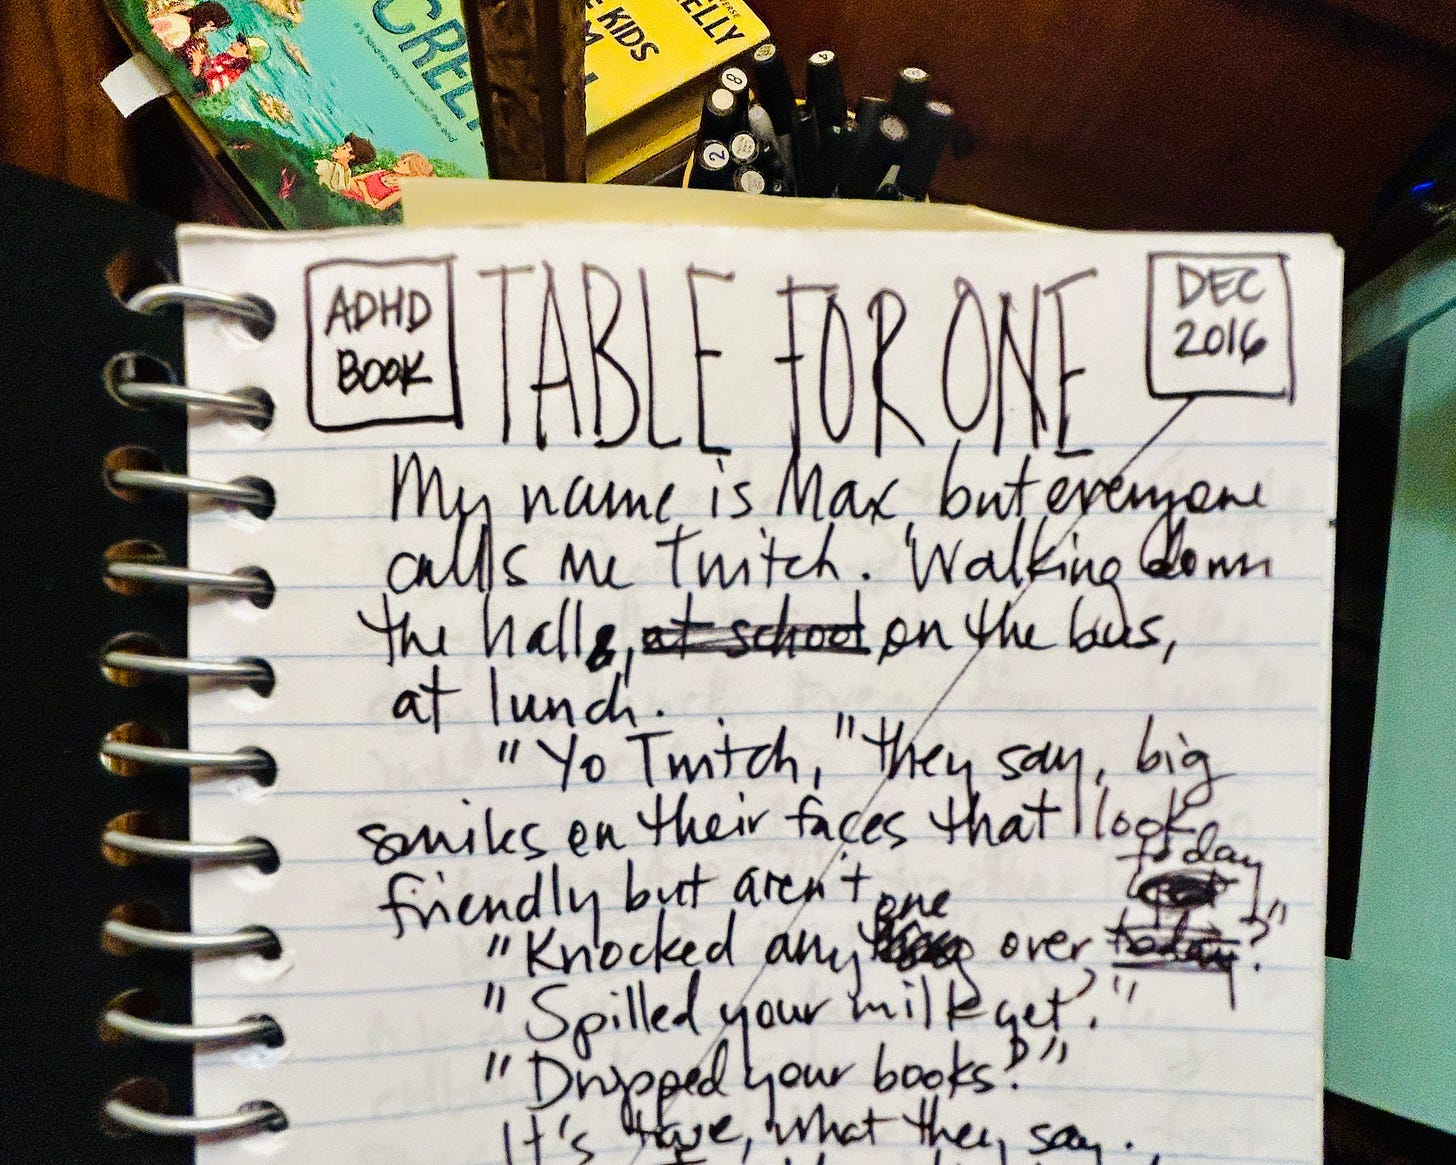 CREE
E KIDS
M
ELLY
8
4
2
ADHD
BOOK
TABLE FOR ONE
DEC
2016
My name is Max but everyone
calls me Twitch. Walking down
the halls, at school on the bus,
at lunch.
"Yo Twitch," they say, big
smiles on their faces that look
friendly but aren't
"Knocked anyone over today?"
"Spilled your milk yet?"
"Dropped your books?"
It's true, what they say.